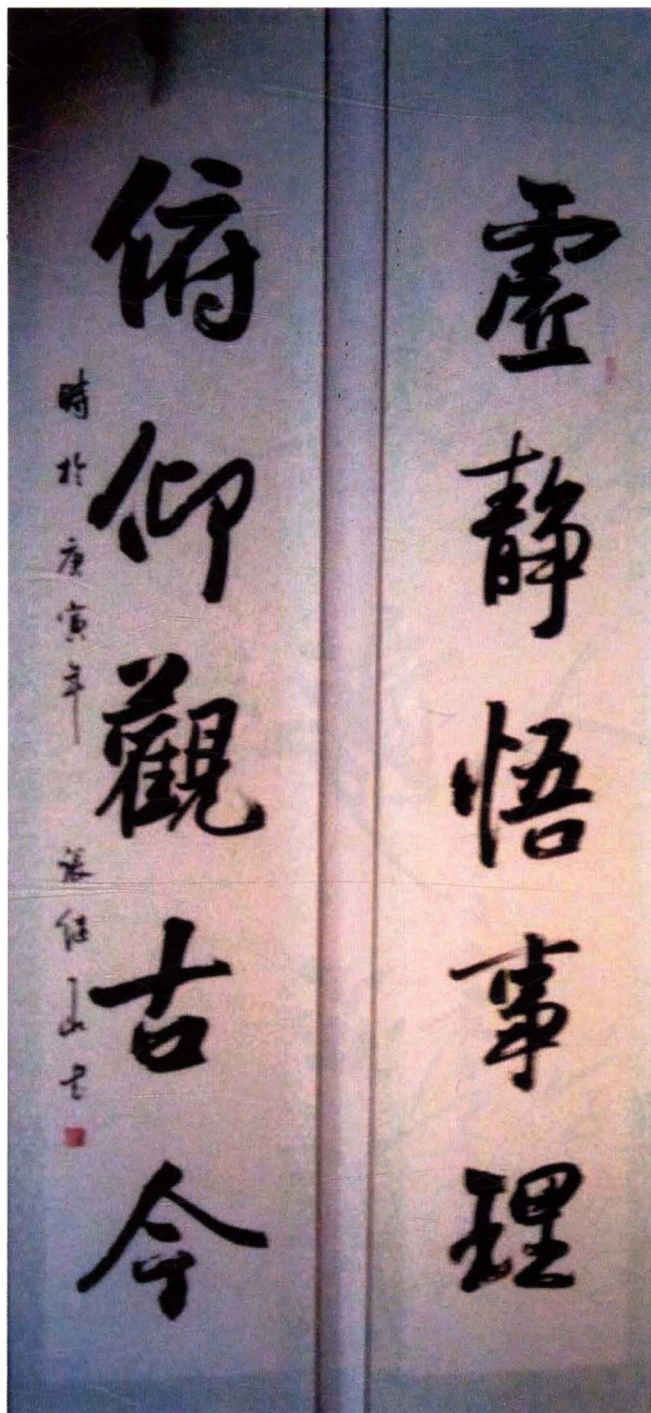 虛静悟事理
俯仰觀古今
時於庚寅年 張继